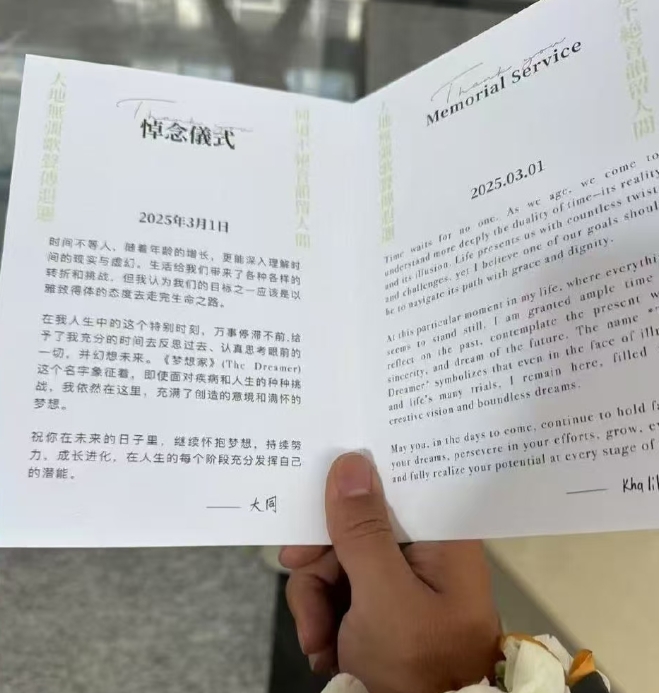 Thank you
悼念儀式
大地無彊歌聲傳迴邇
同堂不絕音韻留人間
2025年3月1日
时间不等人，随着年龄的增长，更能深入理解时
间的现实与虚幻。生活给我们带来了各种各样的
转折和挑战，但我认为我们的目标之一应该是以
雅致得体的态度去走完生命之路。
在我人生中的这个特别时刻，万事停滞不前，给
予了我充分的时间去反思过去、认真思考眼前的
一切，并幻想未来。《梦想家》(The Dreamer)
这个名字象征着，即使面对疾病和人生的种种挑
战，我依然在这里，充满了创造的意境和满怀的
梦想。
祝你在未来的日子里，继续怀抱梦想，持续努
力，成长进化，在人生的每个阶段充分发挥自己
的潜能。
—— 大同
Thank you
Memorial Service
2025.03.01
Time waits for no one. As we age, we come to
understand more deeply the duality of time—its reality
and its illusion. Life presents us with countless twist
and challenges, yet I believe one of our goals shoul
be to navigate its path with grace and dignity.
At this particular moment in my life, where everythi
seems to stand still, I am granted ample time
reflect on the past, contemplate the present w
sincerity, and dream of the future. The name
Dreamer" symbolizes that even in the face of illn
and life's many trials, I remain here, filled
creative vision and boundless dreams.
May you, in the days to come, continue to hold fa
your dreams, persevere in your efforts, grow, ev
and fully realize your potential at every stage of
—— Khalil